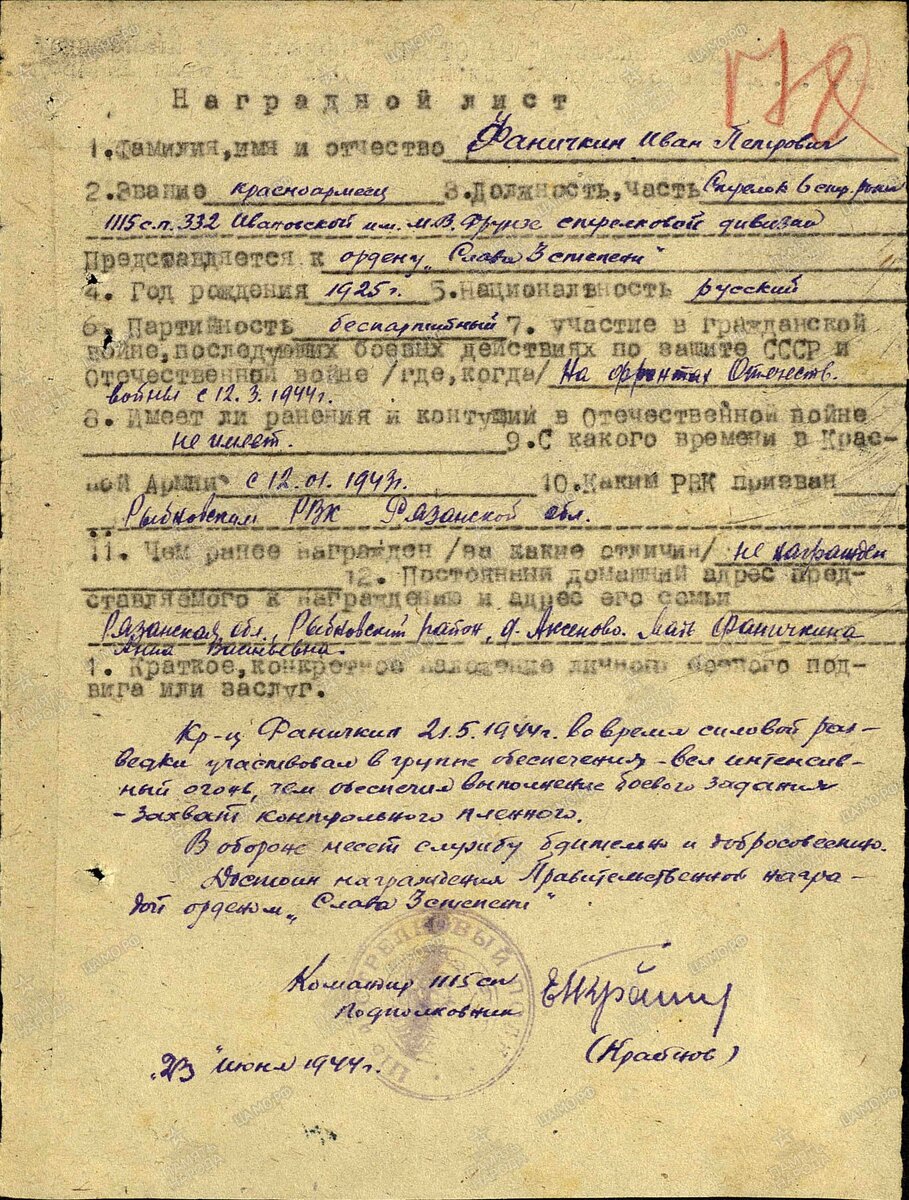 178
Наградной лист
1.Фамилия,имя и отчество Фаничкин Иван Петрович
2.Звание красноармеец 3.Должность,часть Стрелок 6 стр. роты
1115 с.п. 332 Ивановской им. М.В. Фрунзе стрелковой дивизии
Представляется к ордену „Слава 3 степени"
4. Год рождения 1925 г. 5.Национальность русский
6. Партийность беспартийный 7. участие в гражданской
войне,последующих боевых действиях по защите СССР и
Отечественной войне /где,когда/ На фронтах Отечеств.
войны с 12.3.1944 г.
8. Имеет ли ранения и контузий в Отечественной войне
не имеет. 9.С какого времени в Крас-
ной Армии с 12.01.1943 г. 10.Каким РВК призван
Рыбновским РВК Рязанской обл.
11. Чем ранее награжден /за какие отличия/ не награжден
12. Постоянный домашний адрес пред-
ставляемого к награждению и адрес его семьи
Рязанская обл., Рыбновский район, д. Аксеново. Мать Фаничкина
Анна Васильевна.
1. Краткое,конкретное изложение личного боевого под-
вига или заслуг.
Кр-ц Фаничкин 21.5.1944 г. во время силовой раз-
ведки участвовал в группе обеспечения - вел интенсив-
ный огонь, чем обеспечил выполнение боевого задания
- захват контрольного пленного.
В обороне несет службу бдительно и добросовестно.
Достоин награждения Правительственной награ-
дой орденом „Слава 3 степени"
Командир 1115 сп
Подполковник
(Крайнов)
„23" Июня 1944 г.